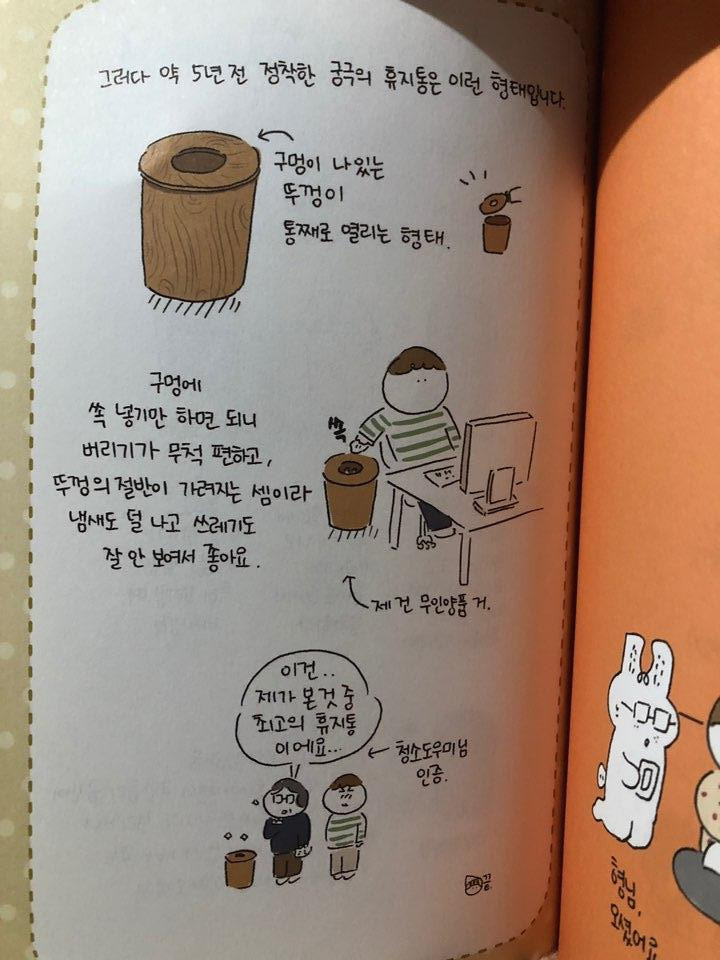 그러다 약 5년 전 정착한 궁극의 휴지통은 이런 형태입니다.
구멍이 나있는
뚜껑이
통째로 열리는 형태.
구멍에
쏙 넣기만 하면 되니
버리기가 무척 편하고,
뚜껑의 절반이 가려지는 셈이라
냄새도 덜 나고 쓰레기도
잘 안 보여서 좋아요.
쏙
제 건 무인양품 거.
이건..
제가 본 것 중
최고의 휴지통
이에요...
청소도우미님
인증.
끝.
형님,
오셨어요